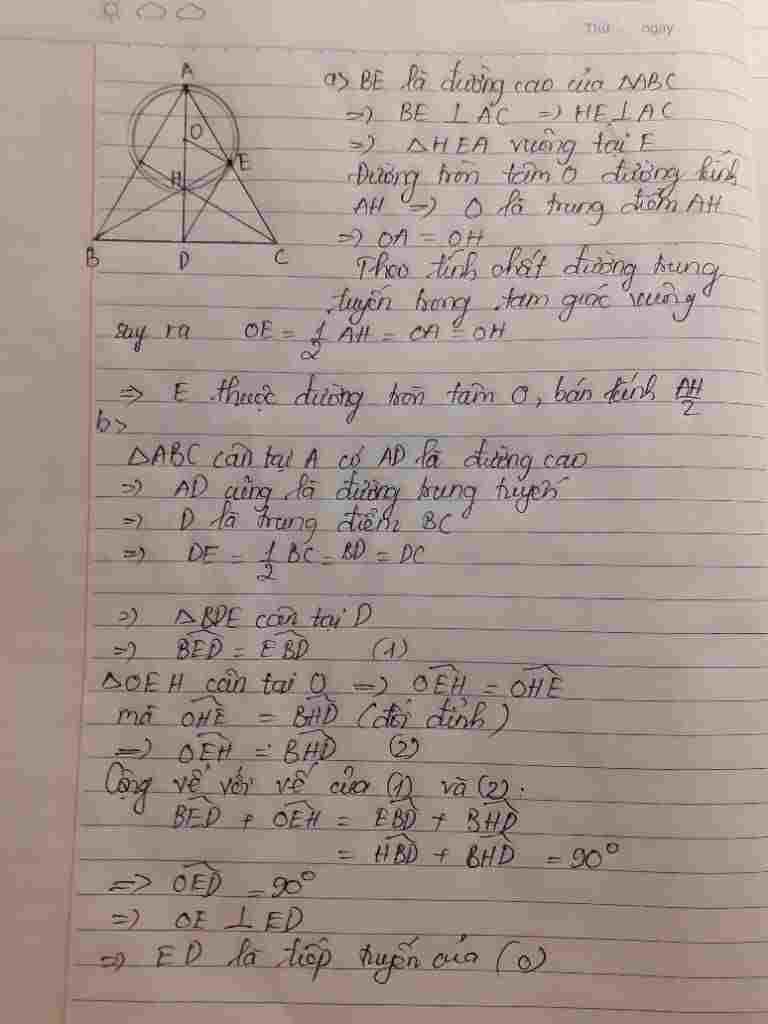 Thứ ngày
A
O
E
H
B
D
C
a> BE là đường cao của △ABC
=> BE ⊥ AC => HE ⊥ AC
=> △HEA vuông tại E
Đường tròn tâm O đường kính
AH => O là trung điểm AH
=> OA = OH
Theo tính chất đường trung
tuyến trong tam giác vuông
suy ra OE = 1/2 AH = OA = OH
=> E thuộc đường tròn tâm O, bán kính AH/2
b>
△ABC cân tại A có AD là đường cao
=> AD cũng là đường trung tuyến
=> D là trung điểm BC
=> DE = 1/2 BC = BD = DC
=> △BDE cân tại D
=> BED̂ = EBD̂ (1)
△OEH cân tại O => OEĤ = OHÊ
mà OHÊ = BHD̂ (đối đỉnh)
=> OEĤ = BHD̂ (2)
Cộng vế với vế của (1) và (2):
BED̂ + OEĤ = EBD̂ + BHD̂
= HBD̂ + BHD̂ = 90°
=> OED̂ = 90°
=> OE ⊥ ED
=> ED là tiếp tuyến của (O)